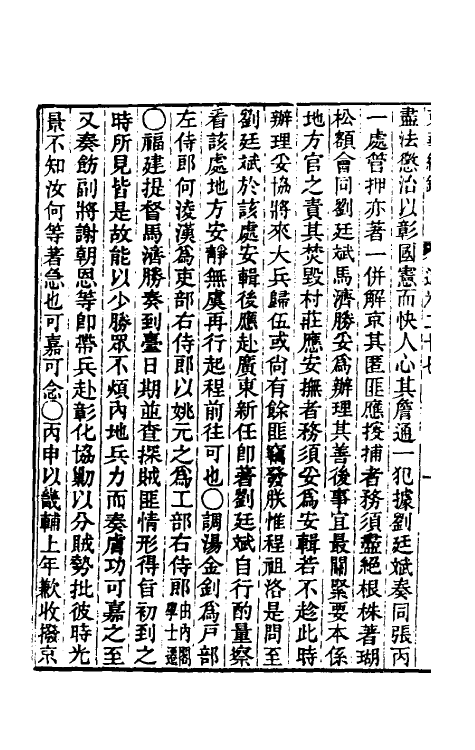 盡法懲治以彰國憲而快人心其詹通一犯據劉廷斌奏同張丙
一處管押亦著一併解京其匿匪應授捕者務須盡絕根株著瑚
松額會同劉廷斌馬濟勝妥爲辦理其善後事宜最關緊要本係
地方官之責其焚毀村莊應安撫者務須妥爲安輯若不趁此時
辦理妥協將來大兵歸伍或尙有餘匪竊發朕惟程祖洛是問至
劉廷斌於該處安輯後應赴廣東新任卽著劉廷斌自行酌量察
看該處地方安靜無虞再行起程前往可也〇調湯金釗爲戶部
左侍郎何淩漢爲吏部右侍郎以姚元之爲工部右侍郎由內閣學士遷
〇福建提督馬濟勝奏到臺日期並查探賊匪情形得旨初到之
時所見皆是故能以少勝眾不煩內地兵力而奏膚功可嘉之至
又奏飭副將謝朝恩等卽帶兵赴彰化協勦以分賊勢批彼時光
景不知汝何等著急也可嘉可念〇丙申以畿輔上年歉收撥京